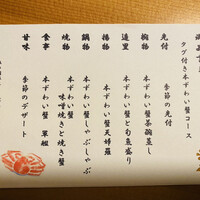 タグ付き本ずわい蟹コース
先付 季節の先付
椀物 本ずわい蟹茶碗蒸し
造里 本ずわい蟹と旬魚盛り
揚物 本ずわい蟹天婦羅
鍋物 本ずわい蟹しゃぶしゃぶ
焼物 本ずわい蟹
味噌焼きと焼き蟹
食事 本ずわい蟹 軍艦
甘味 季節のデザート